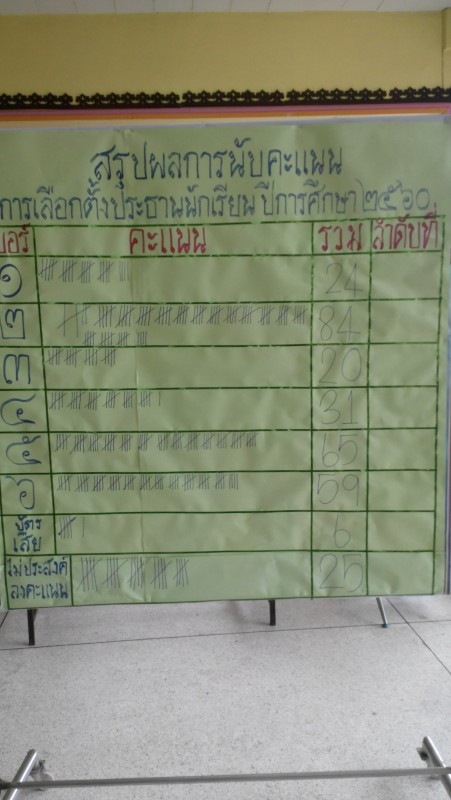 สรุปผลการนับคะแนน
การเลือกตั้งประธานนักเรียน ปีการศึกษา ๒๕๖๐
เบอร์ คะแนน รวม ลำดับที่
๑ 24
๒ 84
๓ 20
๔ 31
๕ 65
๖ 59
บัตรเสีย 6
ไม่ประสงค์ลงคะแนน 25